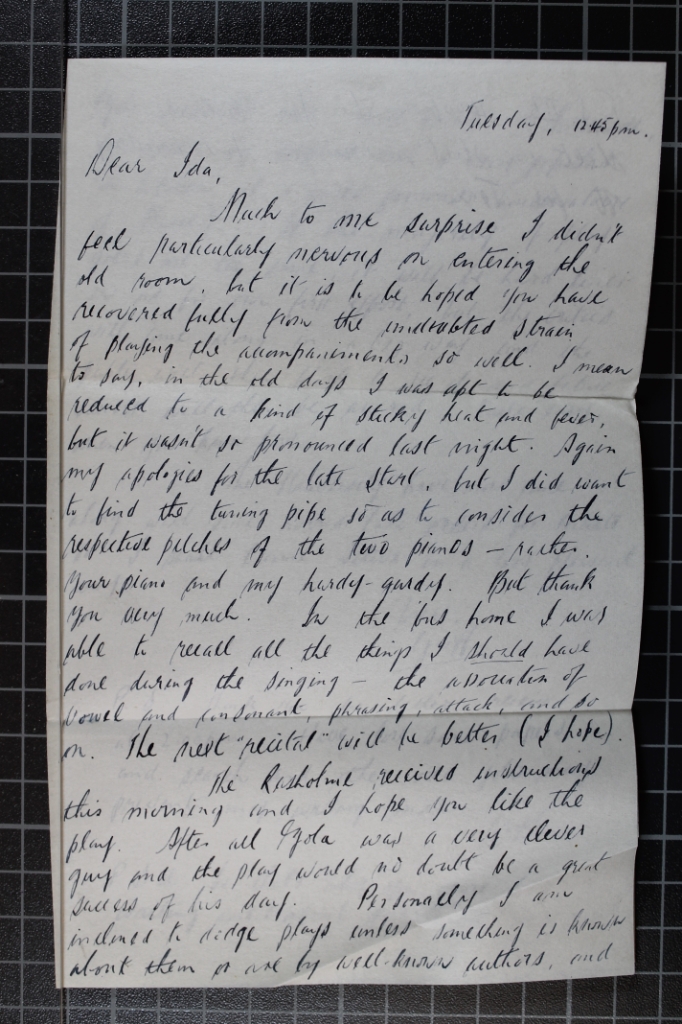 Tuesday, 12.45 pm.
Dear Ida,
Much to me surprise I didn't
feel particularly nervous on entering the
old room, but it is to be hoped you have
recovered fully from the undoubted strain
of playing the accompaniments so well. I mean
to say, in the old days I was apt to be
reduced to a kind of sticky heat and fever,
but it wasn't so pronounced last night. Again
my apologies for the late start, but I did want
to find the tuning pipe so as to consider the
respective pitches of the two pianos – rather
your piano and my hurdy-gurdy. But thank
you very much. In the bus home I was
able to recall all the things I should have
done during the singing – the association of
vowel and consonant, phrasing, attack, and so
on. The next "recital" will be better (I hope).
The Rusholme received instructions
this morning and I hope you like the
play. After all Zola was a very clever
guy and the play would no doubt be a great
success of his day. Personally I am
inclined to dodge plays unless something is known
about them or are by well-known authors, and